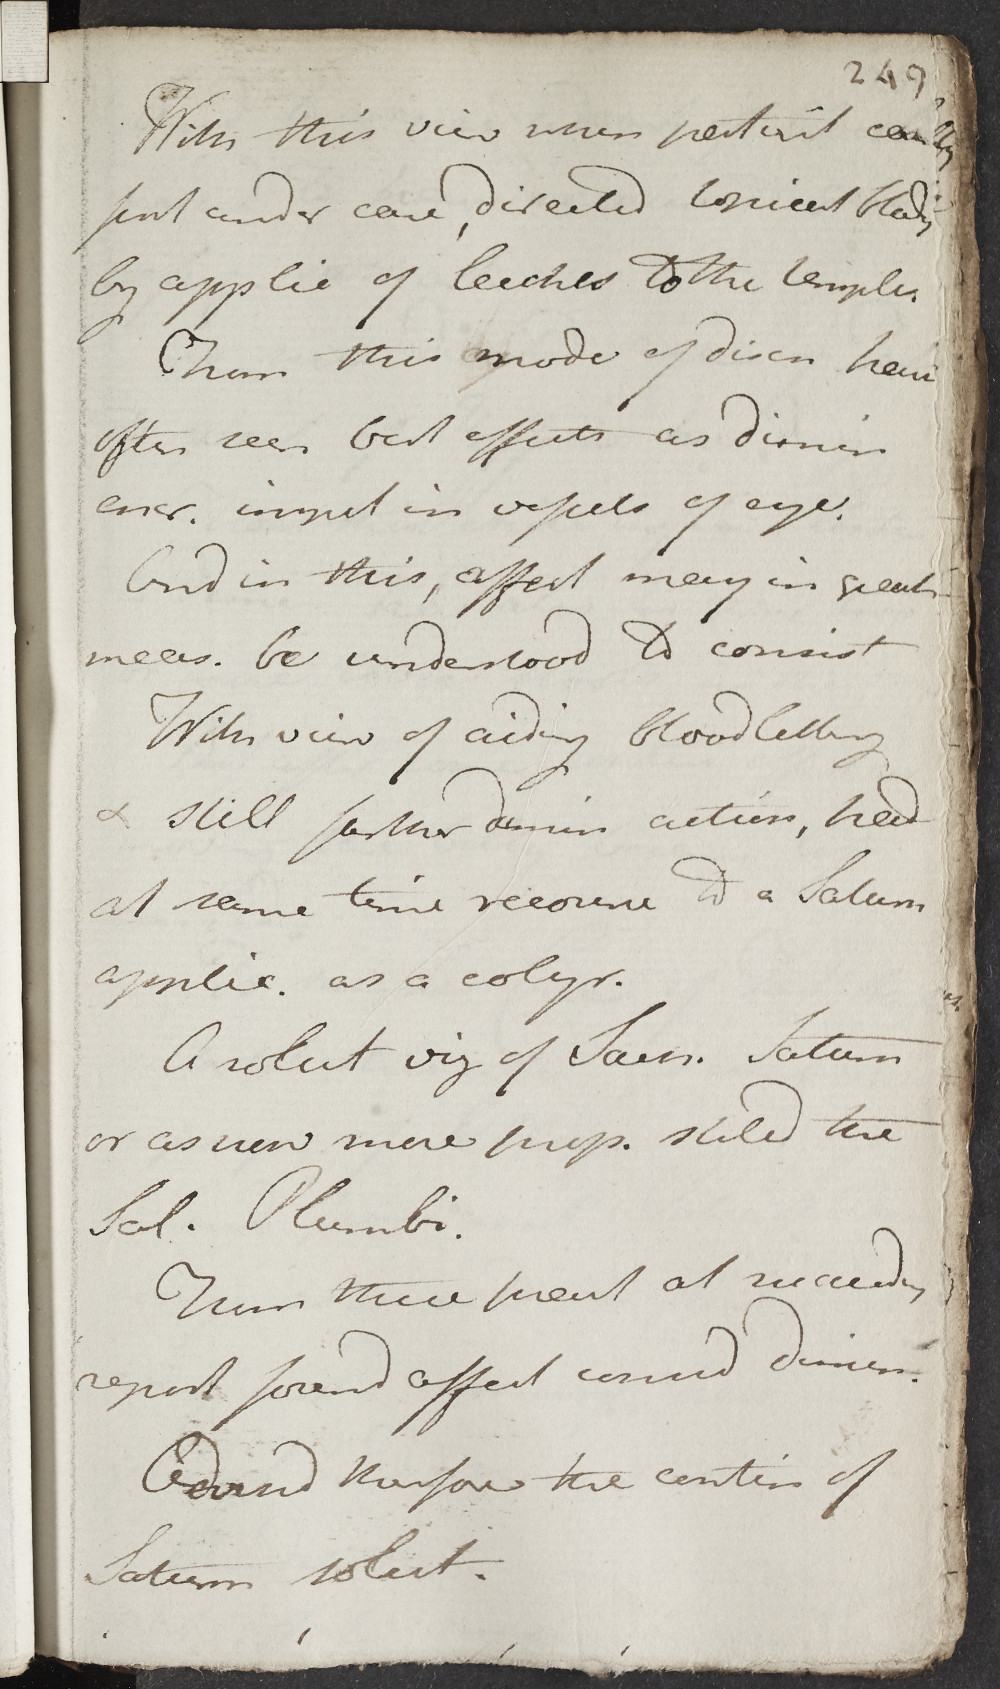 249
With this view when patient
first under care, directed topical bleedg
by applic of leeches to the temples.
From this mode of discn have
often seen best effects as dimin
encr. imput in vessels of eye.
And in this, affect may in great
meas. be understood to consist
With view of aiding bloodletting
& still further dimin action, had
at same time recourse to a Saturn
applic. as a colyr.
A solut viz of Sacc. Saturn
or as now more prop. stiled the
Sal. Plumbi.
From these patient at succeeding
report found affect consid dimin.
therefore the contin of
Saturn solut.